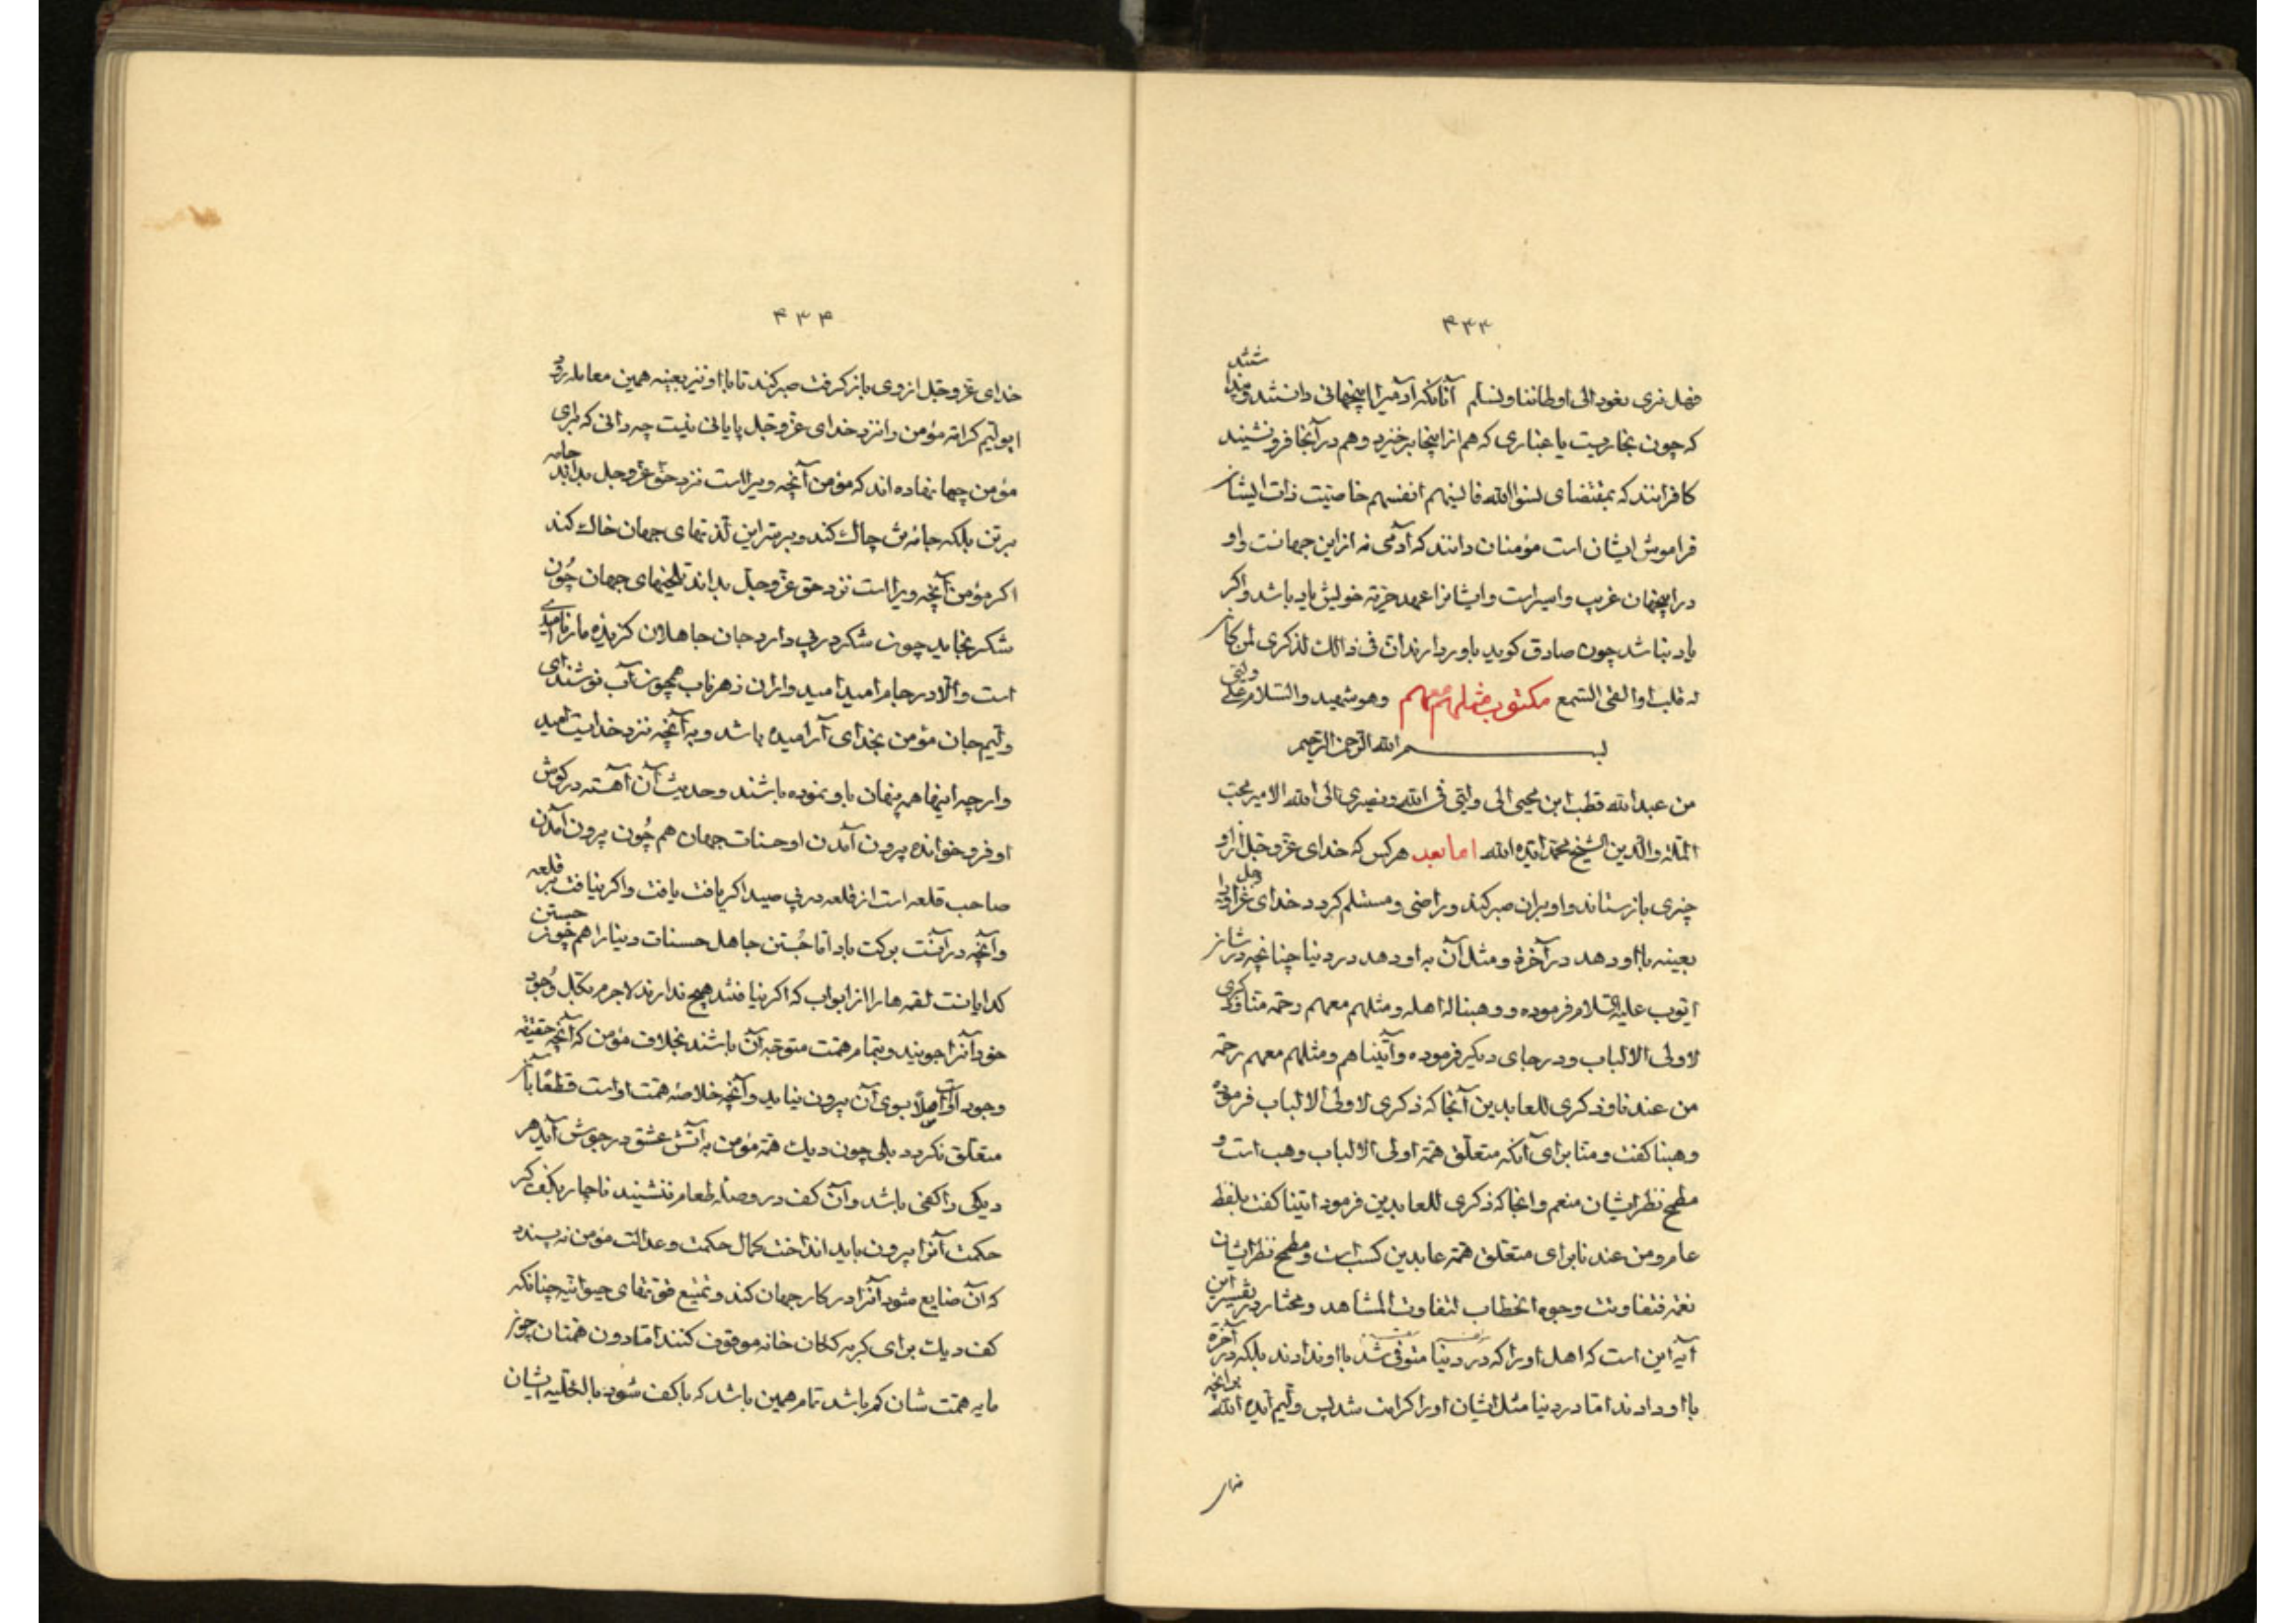 ۴۳۳
فهل نری نعود الی اوطاننا و نسلم آنانکه آدمیرا اینجهانی دانستند و
که چون بخاریست یا غباری که هم از اینجا برخیزد و هم در آنجا فرو نشیند
کافرانند که بمقتضای نسوا الله فانسیهم انفسهم خاصیت ذات ایشان
فراموش ایشان است مؤمنان دانند که آدمی نه از این جهانست و او
در اینجهان غریب و اسیر است و ایشانرا عهد خویش یاد باشد و اکر
یاد نباشد چون صادق کوید باور دارند ان فی ذالک لذکری لمن کان
له قلب او القی السمع وهو شهید والسلام علی
مکتوب مثلهم معهم
بسم الله الرحمن الرحیم
من عبدالله قطب ابن محیی الی ولیی فی الله و نصیری الی الله الامیر محب
الملة والدین الشیخ محمد ایده الله اما بعد هر کس که خدای عز و جل از او
چیزی بازستاند و او بران صبر کند و راضی و مستسلم کردد خدای عز و جل
بعینه باو دهد در آخرة و مثل آن به او دهد در دنیا چنانچه در شان
ایوب علیه السلام فرموده و وهبنا له اهله و مثلهم معهم رحمة منا و ذکری
لاولی الالباب و در جای دیکر فرموده و آتیناهم و مثلهم معهم رحمة
من عندنا و ذکری للعابدین آنجا که ذکری لاولی الالباب فرموده
وهبنا کفت و منا برای آنکه متعلق همة اولی الالباب وهب است و
مطمح نظر ایشان منعم و انجا که ذکری للعابدین فرمود اتینا کفت بلفظ
عام و من عندنا برای متعلق همة عابدین کسب است و مطمح نظر ایشان
نعمة فتفاوتت وجوه الخطاب لتفاوت المشاهد و مختار در تفسیر این
آیه این است که اهل او را که در دنیا متوفی شد باو ندادند بلکه در آخرة
باو دادند اما در دنیا مثل ایشان او را کرامت شد پس ولیم ایده الله بر آنچه
۴۳۴
خدای عز و جل از وی باز کرفت صبر کند تا با او نیز بعینه همین معامله رود
ای ولیم کرامة مؤمن را نزد خدای عز و جل پایانی نیست چه دانی که برای
مؤمن چها نهاده اند که مؤمن آنچه ویرا است نزد حق عز و جل بداند جامه
بر تن بلکه جانرا بر تن چاک کند و بر سر این لذتهای جهان خاک کند
اکر مؤمن آنچه ویرا است نزد حق عز و جل بداند تلخیهای جهان چون
شکر بخاید چون شکر در پی دارد جان جاهلان کزیده مار ناامیدی
است والا در جام امید امید واران زهر ناب همچون آب نوشند ای
ولیم جان مؤمن بخدای آرامیده باشد و به آنچه نزد خدایست امید
وار چه اینها همه پنهان باو نموده باشند و حدیث آن آهسته در کوش
او فرو خوانده بیرون آمدن او حسنات جهان هم چون بیرون آمدن
صاحب قلعه است از قلعه در پی صید اکر یافت یافت و اکر نیافت بر قلعه
و آنچه در آنست برکت باد اما جستن جاهل حسنات دنیا را هم چون جستن
کدایانست لقمه ها را از ابواب که اکر نیافتند هیچ ندارند لاجرم بکل وجود
خود آنرا جویند و بتمام همت متوجه آن باشند بخلاف مؤمن که آنچه حقیقة
وجود او است اصلا بسوی آن بیرون نیاید و آنچه خلاصه همت او است قطعا بآن
متعلق نکردد بلی چون دیک همة مؤمن به آتش عشق در جوش آید هر
دیکی را کفی باشد و آن کف در وصله طعام ننشیند ناچار بکف کر
حکمت آنرا بیرون باید انداخت کمال حکمت و عدالت مؤمن نه پسندد
که آن ضایع شود آنرا در کار جهان کند و تمتیع قوتهای حیوانیه چنانکه
کف دیک برای کربه کان خانه موقوف کنند اما دون همتان چون
مایه همت شان کم باشد تمام همین باشد که با کف شود بالکلیه ایشان